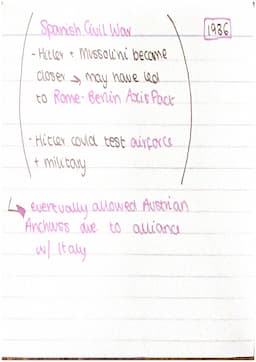 Spanish Civil War
1936
- Hitler + Mussolini became
closer → may have led
to Rome-Berlin Axis Pact
- Hitler could test airforce
+ military
↳ eventually allowed Austrian
Anchluss due to alliance
w/ Italy